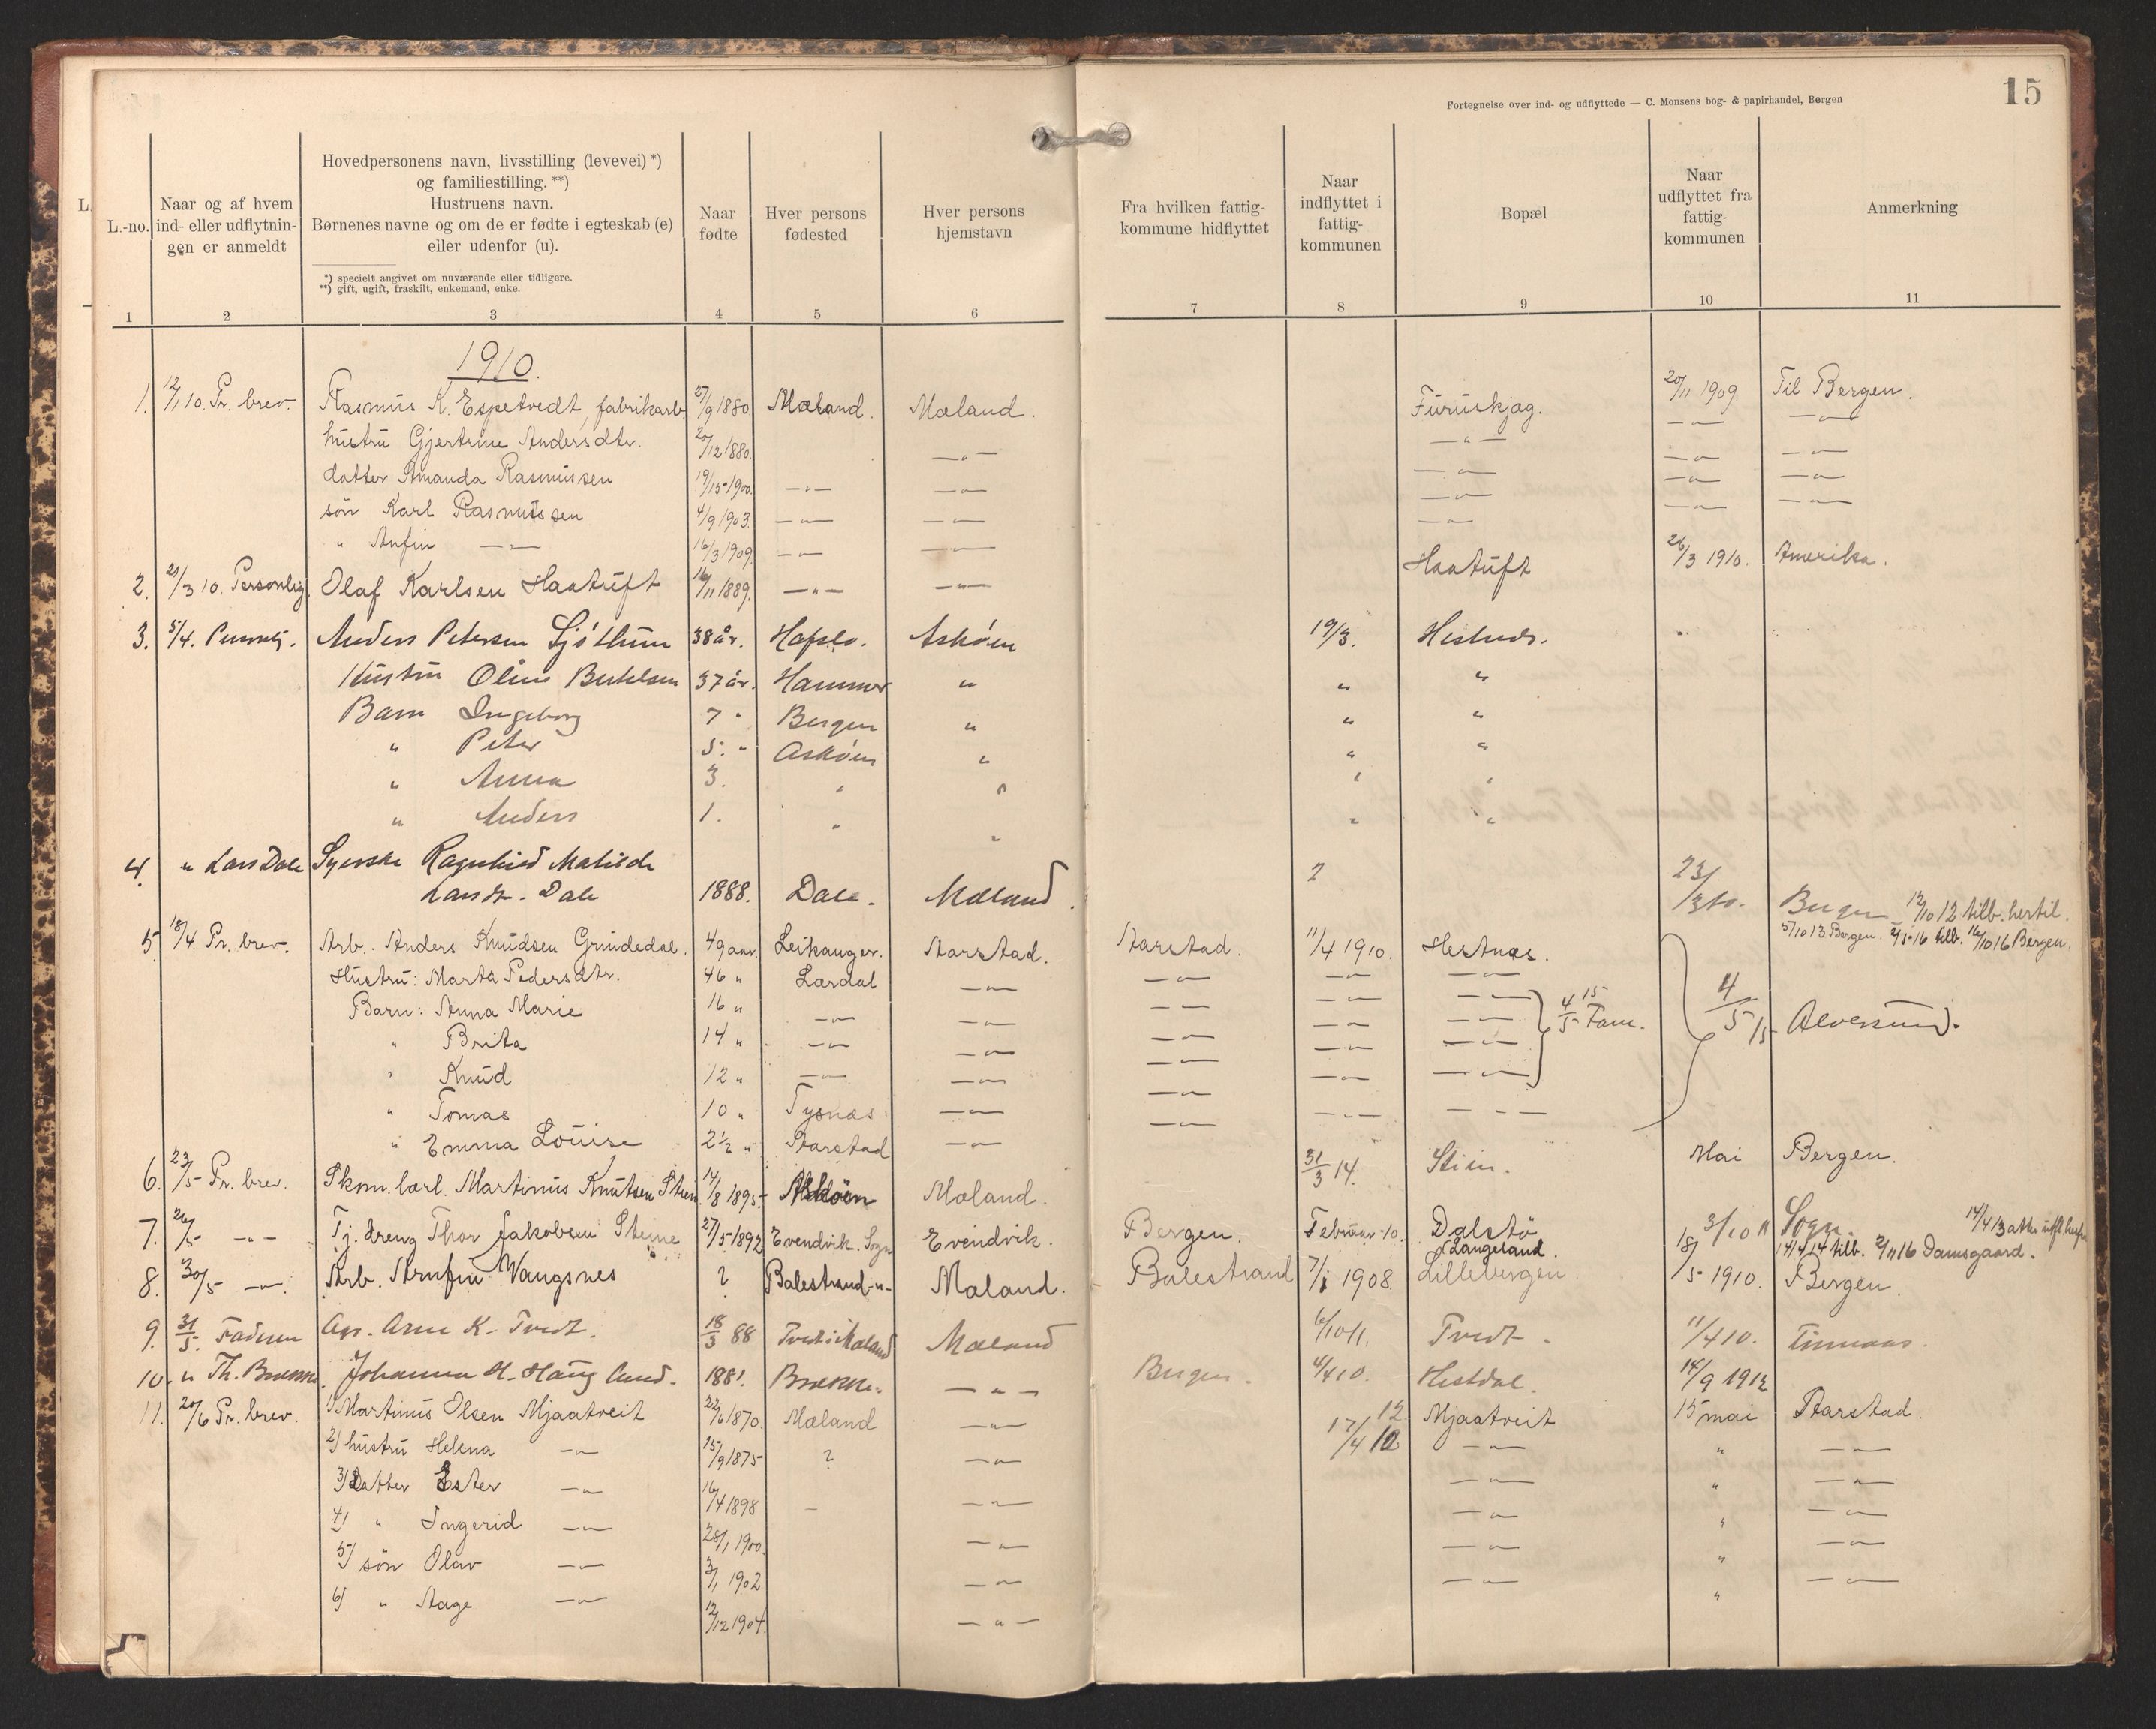 15
Fortegnelse over ind- og udflyttede — C. Monsens bog- & papirhandel, Bergen
L.-no.
Naar og af hvem ind- eller udflytnin-gen er anmeldt
Hovedpersonens navn, livsstilling (levevei) *)
og familiestilling. **)
Hustruens navn.
Børnenes navne og om de er fødte i egteskab (e)
eller udenfor (u).
*) specielt angivet om nuværende eller tidligere.
**) gift, ugift, fraskilt, enkemand, enke.
Naar fødte
Hver persons fødested
Hver persons hjemstavn
Fra hvilken fattig-kommune hidflyttet
Naar indflyttet i fattig-kommunen
Bopæl
Naar udflyttet fra fattig-kommunen
Anmerkning
1 2 3 4 5 6 7 8 9 10 11
1910.
1. 12/1 10. Pr. brev. Rasmus K. Espetvedt, fabrikarb 27/9 1880. Mæland. Mæland. Furuskjæg. 20/11 1909. Til Bergen.
hustru Gjertrine Andersdtr. 20/12 1880. —"— —"— —"— —"—
datter Amanda Rasmussen 19/15 1900. —"— —"— —"— —"— —"—
søn Karl Rasmussen 4/9 1903. —"— —"— —"— —"— —"—
" Anfin —"— 16/3 1909. —"— —"— —"— —"— —"—
2. 21/3 10. Personlig. Olaf Karlsen Haatuft 16/11 1889. —"— —"— Haatuft 26/3 1910. Amerika.
3. 5/4. Anders Petersen 38 år. Hafslo. Askøen 19/3.
Hustru Oline Bertelsen 37 år. Hammer " " "
Barn Ingeborg 7 " Bergen " " "
" Peter 5. " Askøen " " "
" Anna 3. " " " "
" Anders 1. " " " "
4. " Lars Dale Syerske Ragnhild Matilde
Larsdt. Dale 1888. Dale. Mæland. ? 23/3 10. Bergen 12/10 12 tilb. hertil.
5/10 13 Bergen. 2/5-16 tilb. 16/10 16 Bergen.
5. 18/4. Pr. brev. Arb. Anders Knudsen Grindedal. 49 aar. Leikanger. Aarstad. Aarstad. 11/4 1910. Hestnes.
Hustru: Marta Pedersdtr. 46 " Lærdal —"— —"— —"— —"—
Barn: Anna Marie 16 " —"— —"— —"— —"— —"— 4/5 15 Fam. 4/5 15 Alversund.
" Brita 14 " —"— —"— —"— —"— —"—
" Knud 12 " —"— —"— —"— —"— —"—
" Tomas 10 " Tysnæs —"— —"— —"— —"—
" Emma Louise 2½ " Aarstad —"— —"— —"— —"—
6. 23/5 Pr. brev. Skom.lærl. Martinus Knutsen Stien 14/8 1895. Askøen Mæland. 31/3 14. Stien. Mai Bergen.
7. 26/5 —"— Tj.dreng Thor Jakobsen Steine 27/5 1892 Evendvik. Sogn Evendvik. Bergen. Februar-10. Dalstø 3/10 11 Sogn.
Langeland. 14/4 14 tilb. 2/11 16 Damsgaard.
8. 30/5 —"—. Arb. Arnfin Vangsnes ? Balestrand-"- Mæland. Balestrand 7/1 1908. Lillebergen 18/5 1910. Bergen.
9. 31/5. Faderen Arne K. Tvedt. 18/3 88 Tvedt i Mæland Mæland 6/10 11. Tvedt. 11/4 10.
10. " Th. Brække. Johanna H. Haug 1881. Brække. —"— Bergen. 4/4 10. Hestdal. 14/9 1912
11. 20/6 Pr. brev. 1) Martinus Olsen Mjaatveit 22/6 1870. Mæland —"— 12 Mjaatveit 15 mai Aarstad.
2) hustru Helena —"— 15/9 1875 ? —"— 17/4 12 —"— " —"—
3) Datter Ester —"— 16/4 1898 — —"— —"— " —"—
4) " Ingerid —"— 28/1 1900. —"— —"— " —"—
5) søn Olav —"— 3/1 1902 —"— —"— " —"—
6) " Aage —"— 12/12 1904. —"— —"— " —"—